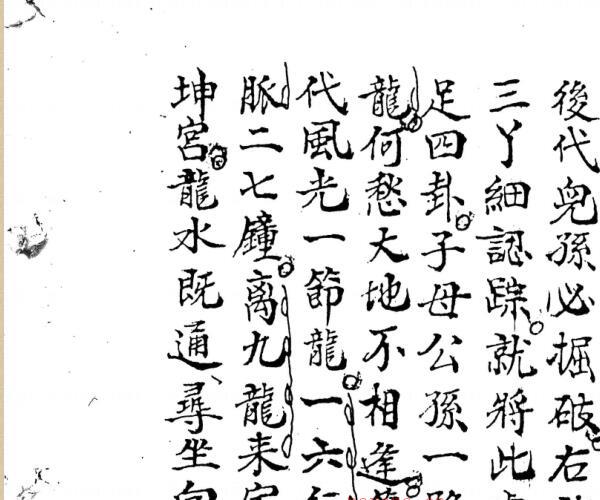 後代兒孫必掘破右
三丫細認踪就將此
足四卦子母公孫一
龍何愁大地不相逢
代風光一節龍一六
脈二七鐘离九龍来
坤宮龍水既通尋坐向